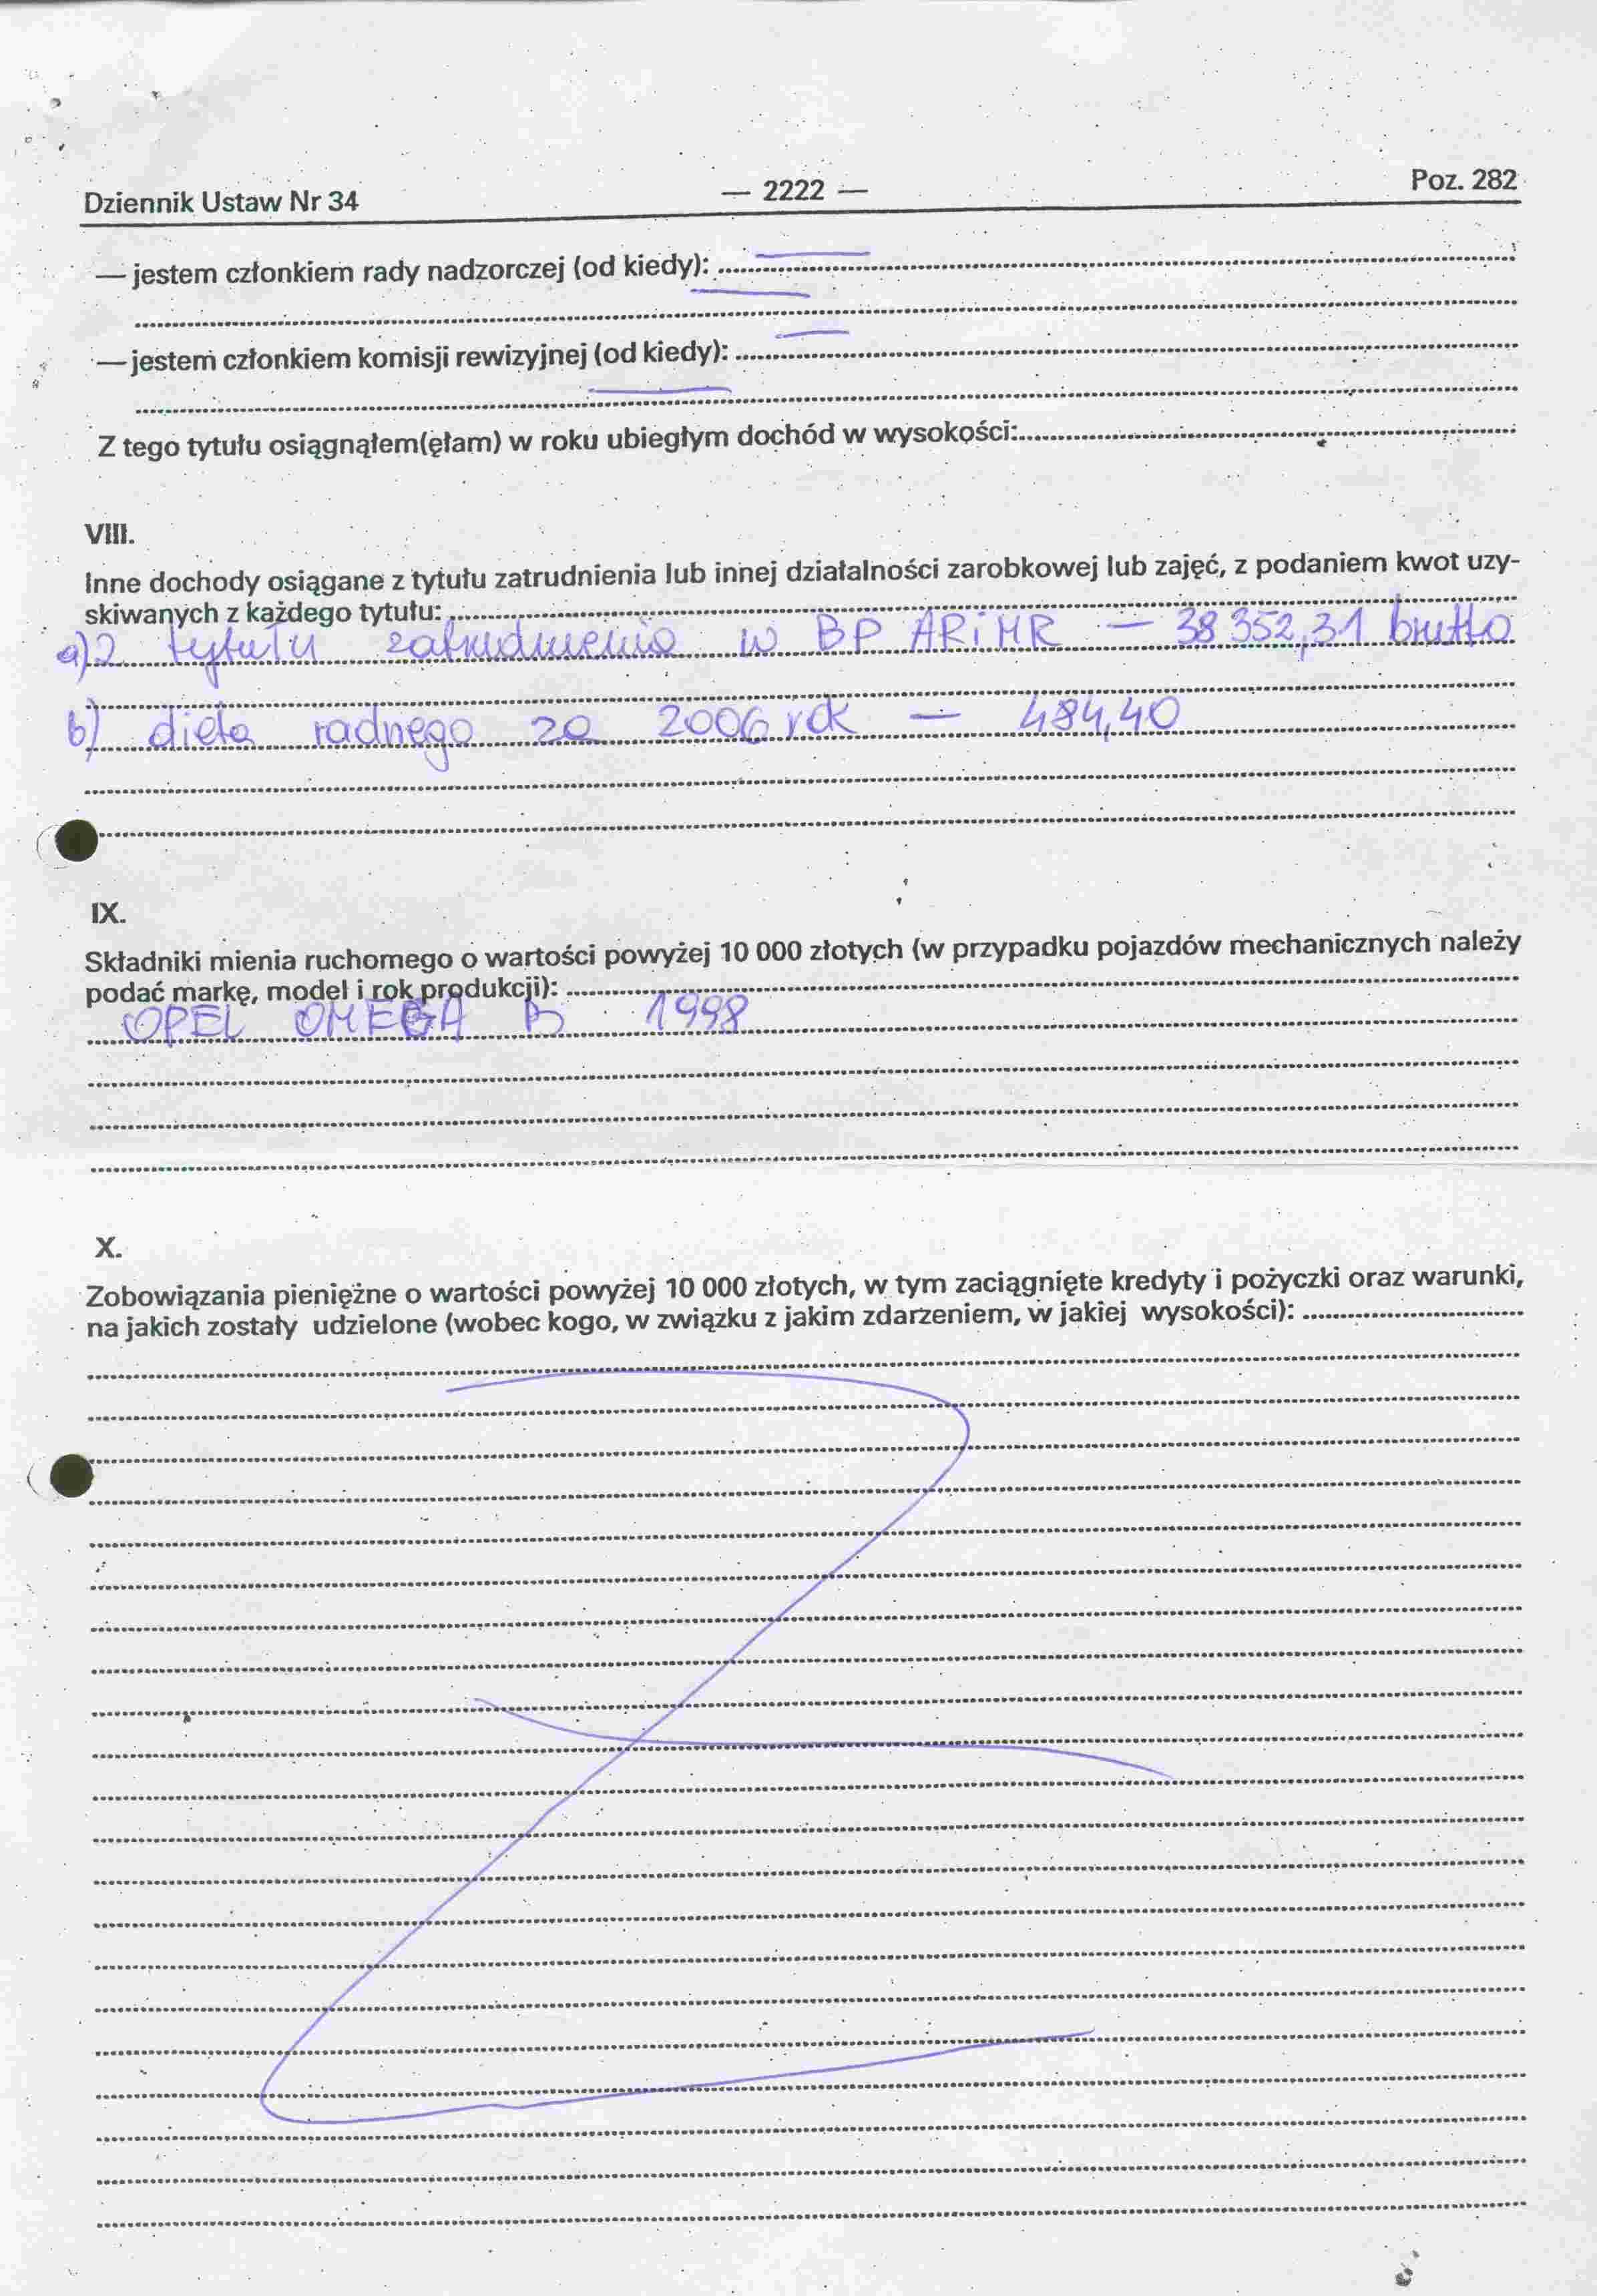 Dziennik Ustaw Nr 34 — 2222 — Poz. 282
— jestem członkiem rady nadzorczej (od kiedy):
— jestem członkiem komisji rewizyjnej (od kiedy):
Z tego tytułu osiągnąłem(ęłam) w roku ubiegłym dochód w wysokości:
VIII.
Inne dochody osiągane z tytułu zatrudnienia lub innej działalności zarobkowej lub zajęć, z podaniem kwot uzy-
skiwanych z każdego tytułu:
a) z tytułu zatrudnienia w BP ARiMR — 38 352,31 brutto
b) dieta radnego za 2006 rok — 484,40
IX.
Składniki mienia ruchomego o wartości powyżej 10 000 złotych (w przypadku pojazdów mechanicznych należy
podać markę, model i rok produkcji):
OPEL OMEGA B 1998
X.
Zobowiązania pieniężne o wartości powyżej 10 000 złotych, w tym zaciągnięte kredyty i pożyczki oraz warunki,
na jakich zostały udzielone (wobec kogo, w związku z jakim zdarzeniem, w jakiej wysokości):